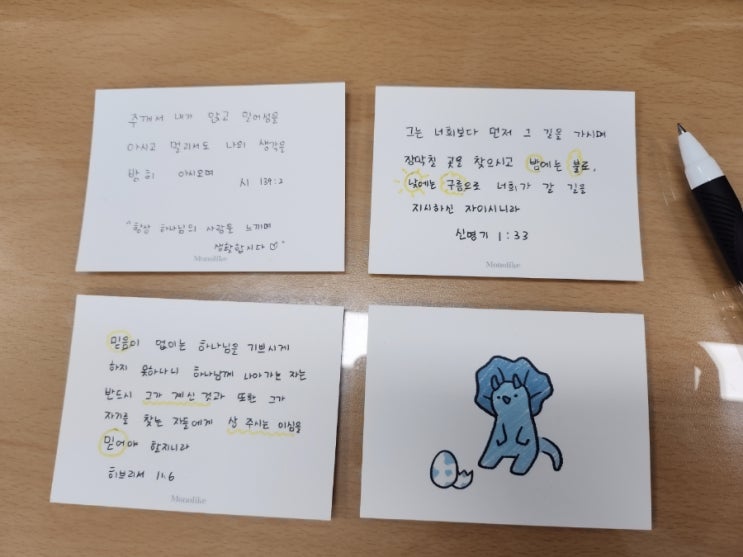 주께서 내가 앉고 일어섬을
아시고 멀리서도 나의 생각을
밝히 아시오며
시 139:2
"항상 하나님의 사랑을 느끼며
생활합시다 ♡"
Monolike
그는 너희보다 먼저 그 길을 가시며
장막칠 곳을 찾으시고 밤에는 불로,
낮에는 구름으로 너희가 갈 길을
지시하신 자이시니라
신명기 1:33
Monolike
믿음이 없이는 하나님을 기쁘시게
하지 못하나니 하나님께 나아가는 자는
반드시 그가 계신 것과 또한 그가
자기를 찾는 자들에게 상 주시는 이심을
믿어야 할지니라
히브리서 11.6
Monolike